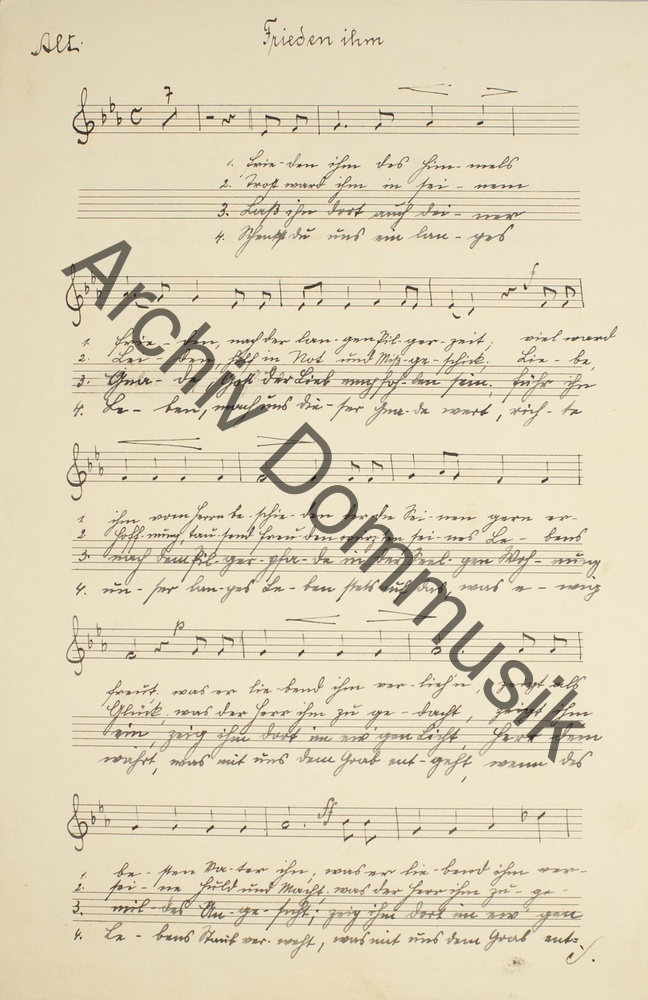 Alt.
Frieden ihm
7
1. Frie-den ihm des Him-mels
2. Trost ward ihm in sei-nem
3. Laß ihn dort auch dei-ner
4. Schenkst du uns ein lan-ges
f
1. Frie-den, nach der lan-gen Pil-ger-zeit; viel ward
2. Lei-den, in Not und Miß-ge-schick. Lie-be,
3. Gna-de, Gott der Lieb sein; führ ihn
4. Le-ben, mach uns die-ser Gna-de wert, rich-te
1. ihm vom Herrn be-schie-den der die Sei-nen gern er-
2. Hoff-nung, tau-send Freu-den sei-nes Le-bens
3. nach dem Pil-ger-pfa-de in der Seel-gen Woh-nung
4. un-ser lan-ges Le-ben stets auf das, was e-wig
p
freut. was er lie-bend ihm ver-lieh'n, zeigt als
Glück. was der Herr ihm zu-ge-dacht, zeigt ihm
ein, zeig ihm dort im ew'gen Licht, Herr dem
währt, was mit uns dem Grab ent-geht, wenn des
ff
1. be-sten Va-ter ihn; was er lie-bend ihm ver-
2. sei-ne Huld und Macht. was der Herr ihm zu-ge-
3. mil-des An-ge-sicht; zeig ihm dort im ew'gen
4. Le-bens Staub ver-weht, was mit uns dem Grab ent-
Archiv Dommusik